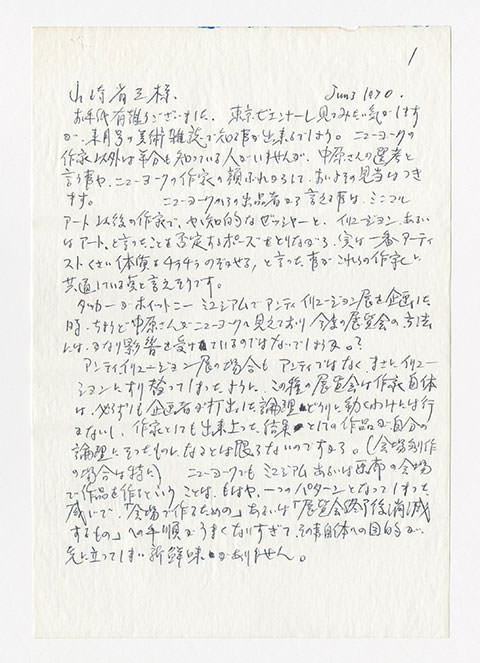 1
山崎省三様、 Jun 3 1970.
お手紙有難うございました、東京ビエンナーレ見てみたい気がします
が、来月号の美術雑誌で知る事が出来るでしょう。ニューヨークの
作家以外は半分も知っている人がいませんが、中原さんの選考と
言う事や、ニューヨークの作家の顔ぶれからして、おおよその見当はつき
ます。 ニューヨークからの出品者から言える事は、ミニマル
アート以後の作家で、やや知的なゼッシャーと、イリュージョン、あるい
はアート、と言ったことを否定するポーズをとりながら、実は一番アーティ
ストくさい体質をチラチラのぞかせる、と言った事がこれらの作家に
共通していると言えそうです。
タッカーがホイットニーミュジアムでアンティイリュージョン展を企画した
時、ちょうど中原さんがニューヨークへ見えており今度の展覧会の方法
にはかなり影響を受けているのではないでしょうか。?
アンティイリュージョン展の場合も アンティではなく、まさにイリュー
ジョンにすり替ってしまったように、この種の展覧会は作家自体
は、必ずしも企画者が打出した論理どうりに動くわけには行
かないし、作家としても出来上った結果としての作品が自分の
論理にそったものになるとは限らないのですから。(会場制作
の場合は特に) ニューヨークでもミュジアムあるいは画廊の会場
で作品を作るということは、もはや、一つのパターンとなってしまった
感じで、「会場で作るための」あるいは「展覧会終了後消滅
するもの」への手順がうまくなりすぎて、その事自体への目的が、
先に立ってしまい新鮮味がありません。